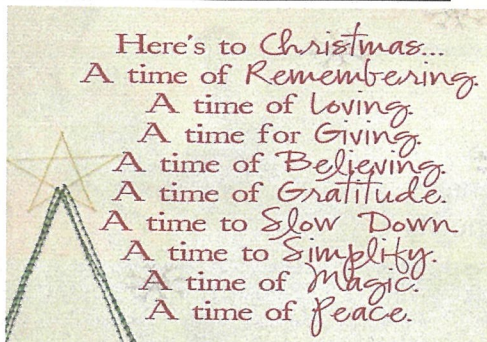 Here's to Christmas...
A time of Remembering.
A time of Loving.
A time for Giving.
A time of Believing.
A time of Gratitude.
A time to Slow Down
A time to Simplify.
A time of Magic.
A time of Peace.